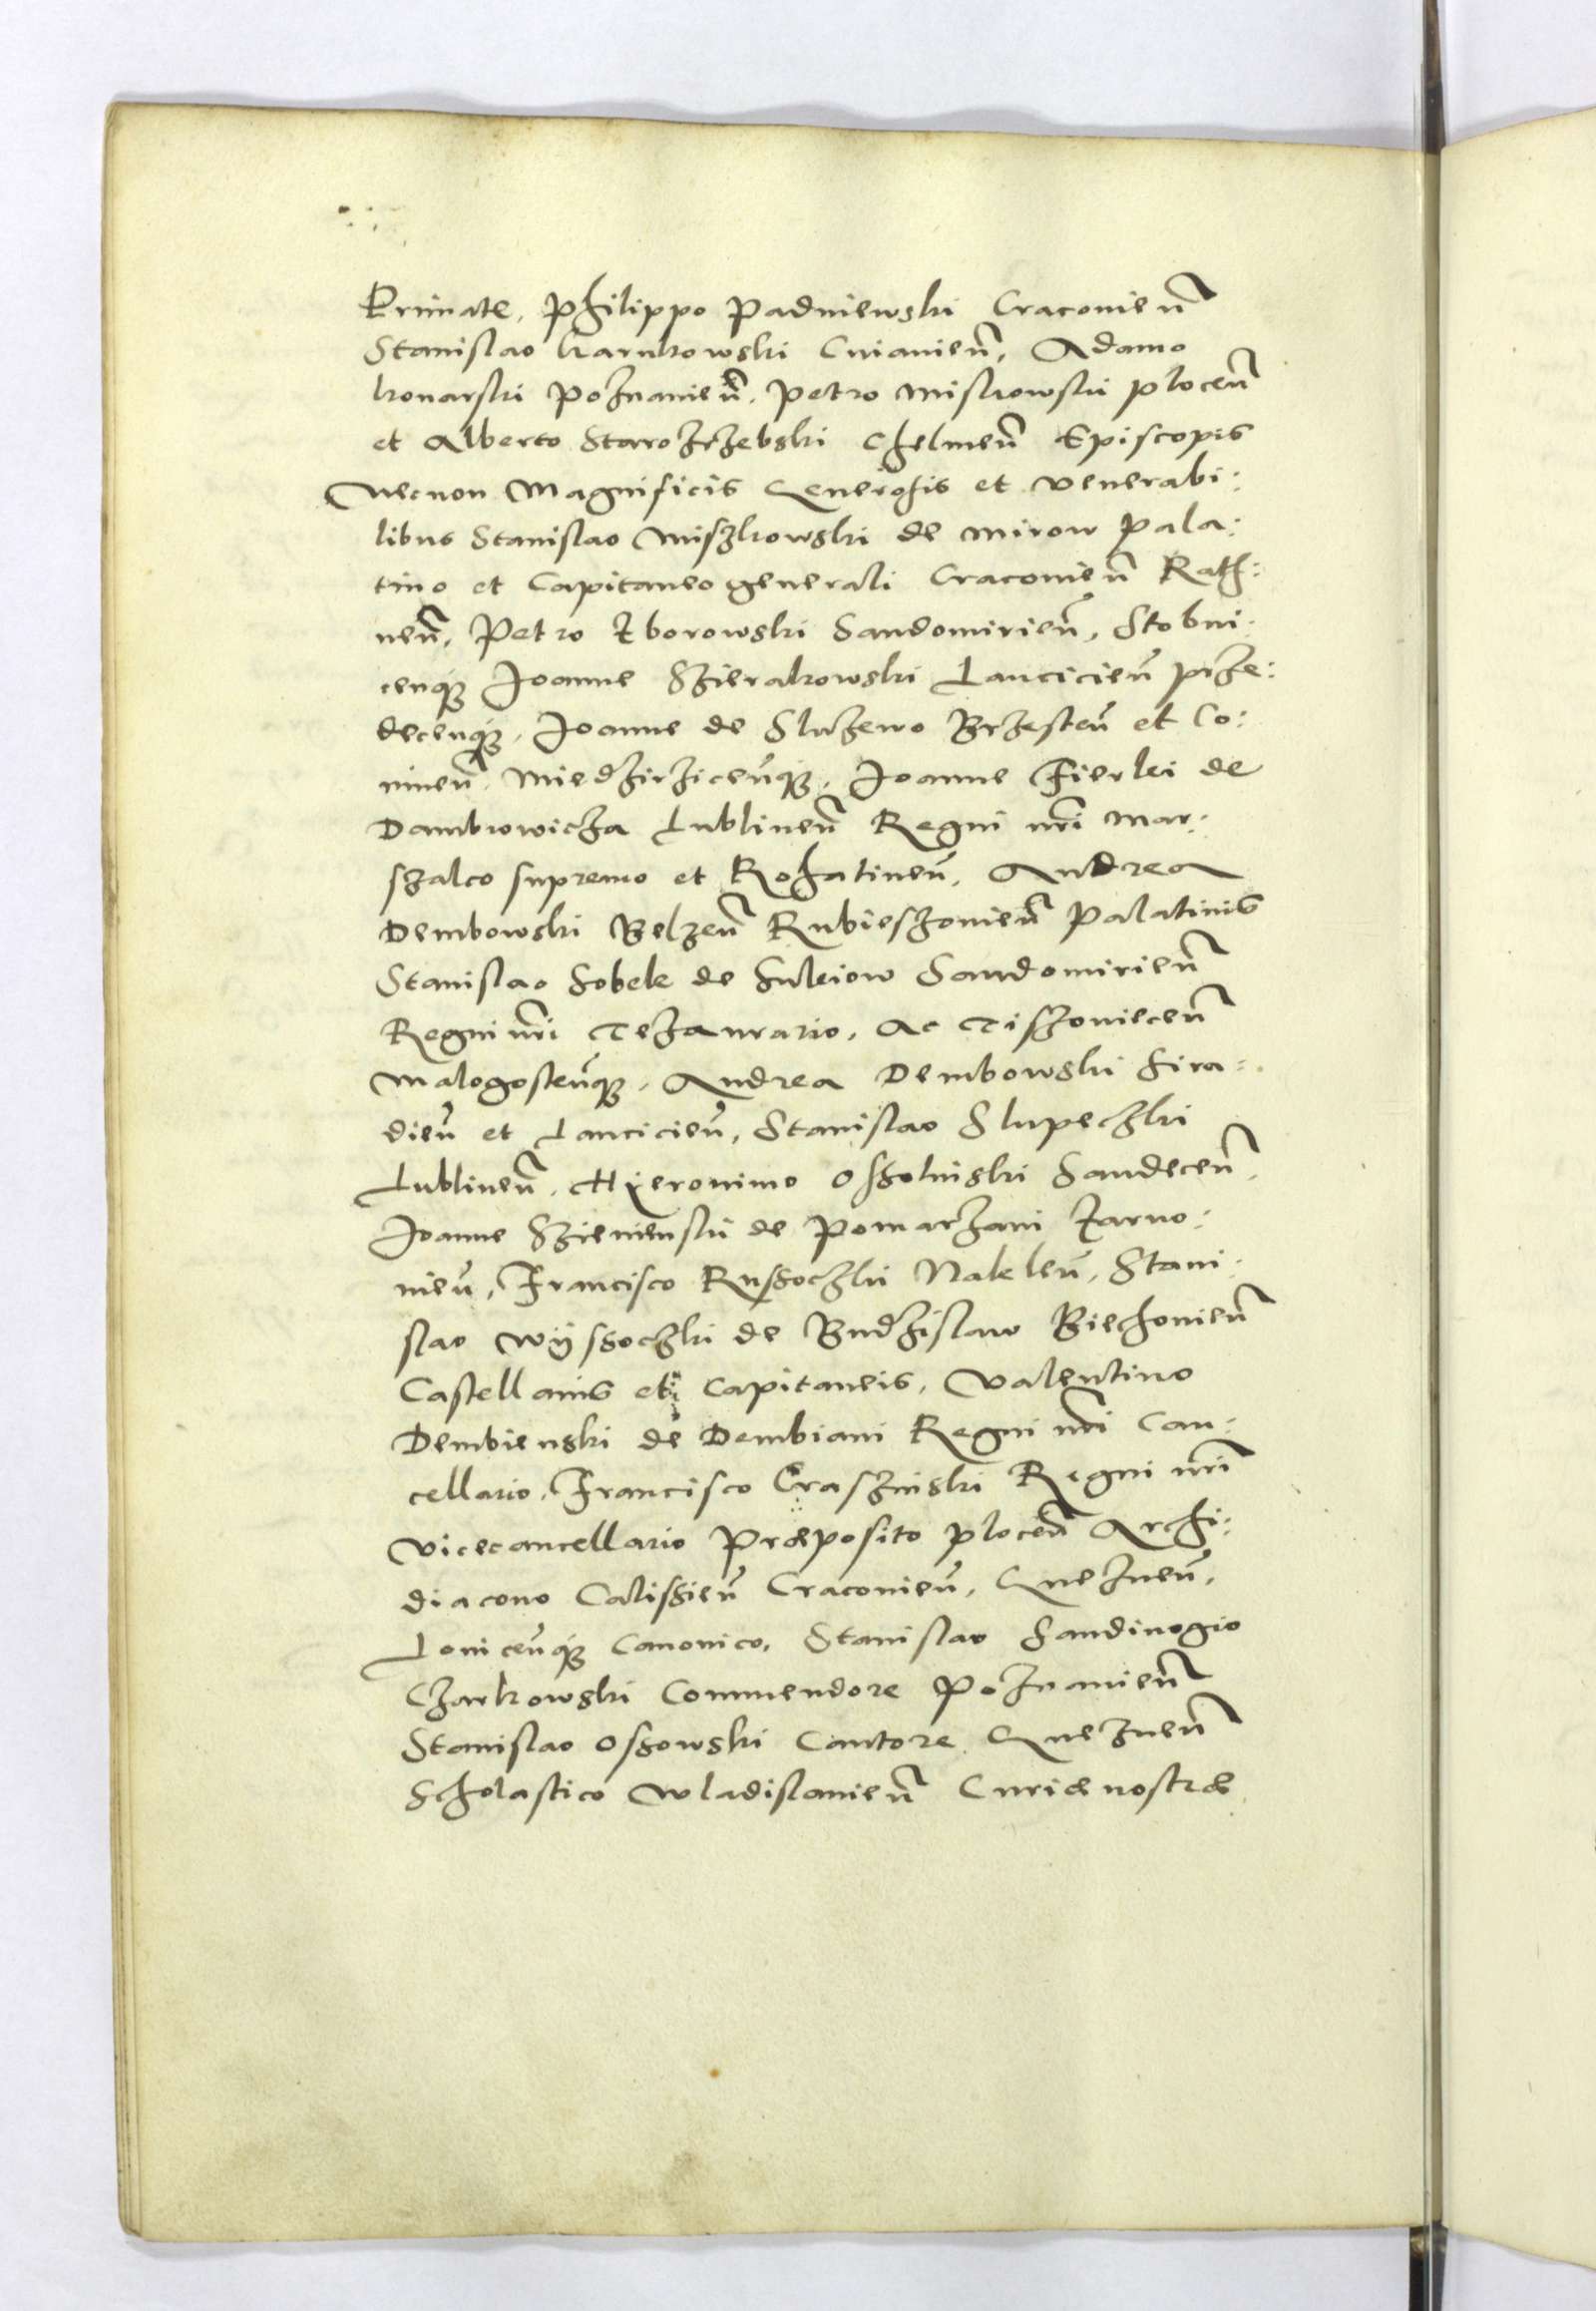 Primate, Philippo Padniewski Cracovien̄
Stanislao Karnkowski Cuiavien̄, Adamo
Konarski Poznanien̄, Petro Miskowski plocen̄
et Alberto Starozrzebski Chelmen̄ Episcopis
Necnon Magnificis Generosis et venerabi:
libus Stanislao Miszkowski de Mirow pala:
tino et Capitaneo generali Cracovien̄ Rath:
nen̄, Petro Zborowski Sandomirien̄, Stobni:
cenq̄ꝫ Joanne Szierakowski Lancicien̄ prze:
decenq̄ꝫ, Joanne de Sluzewo Brzesten̄ et Co:
ninen̄, Miedzirzicen̄qꝫ, Joanne Fierlei de
Dambrowicza Lublinen̄ Regni nr̄i Mar:
szalco supremo et Rohatinen̄, Andrea
Dembowski Belzen̄ Rubieszovien̄ Palatinis
Stanislao Sobek de Suleiow Sandomirien̄
Regni nr̄i Tezaurario, Ac Tiszoviecen̄
Malogosten̄qꝫ, Andrea Dembowski Sira:
dien̄ et Lancicien̄, Stanislao Slupeczki
Lublinen̄, Hÿeronimo Ossolinski Sandecen̄,
Joanne Szienienski de Pomarzani Zarno:
nien̄, Francisco Russoczki Nakelen̄, Stani:
slao Wÿssoczki de Budzislaw Biechovien̄
Castellanis et Capitaneis, Valentino
Dembienski de Dembiani Regni nr̄i Can:
cellario, Francisco Crasznski Regni nr̄i
vicecancellario Præposito plocen̄ Archi:
diacono Calissien̄ Cracovien̄, Gneznen̄,
Lovicen̄qꝫ Canonico, Stanislao Sandivogio
Czarkowski Commendore Poznanien̄
Stanislao Ossowski Cantore Gneznen̄
Scholastico Wladislavien̄ Curiæ nostræ